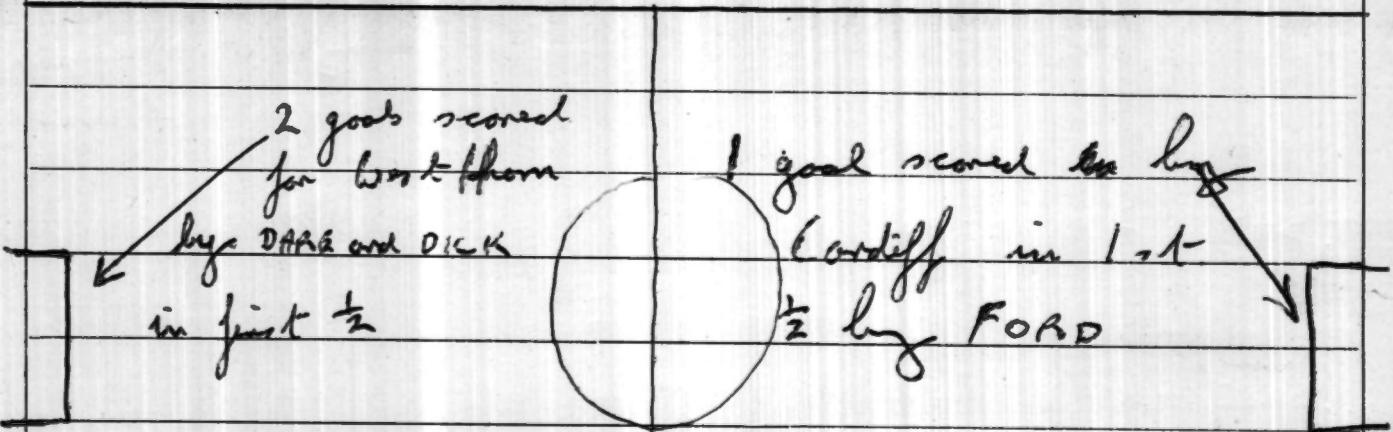 2 goals scored
for West Ham
by DARE and DICK
in first ½
1 goal scored by
Cardiff in 1st
½ by FORD